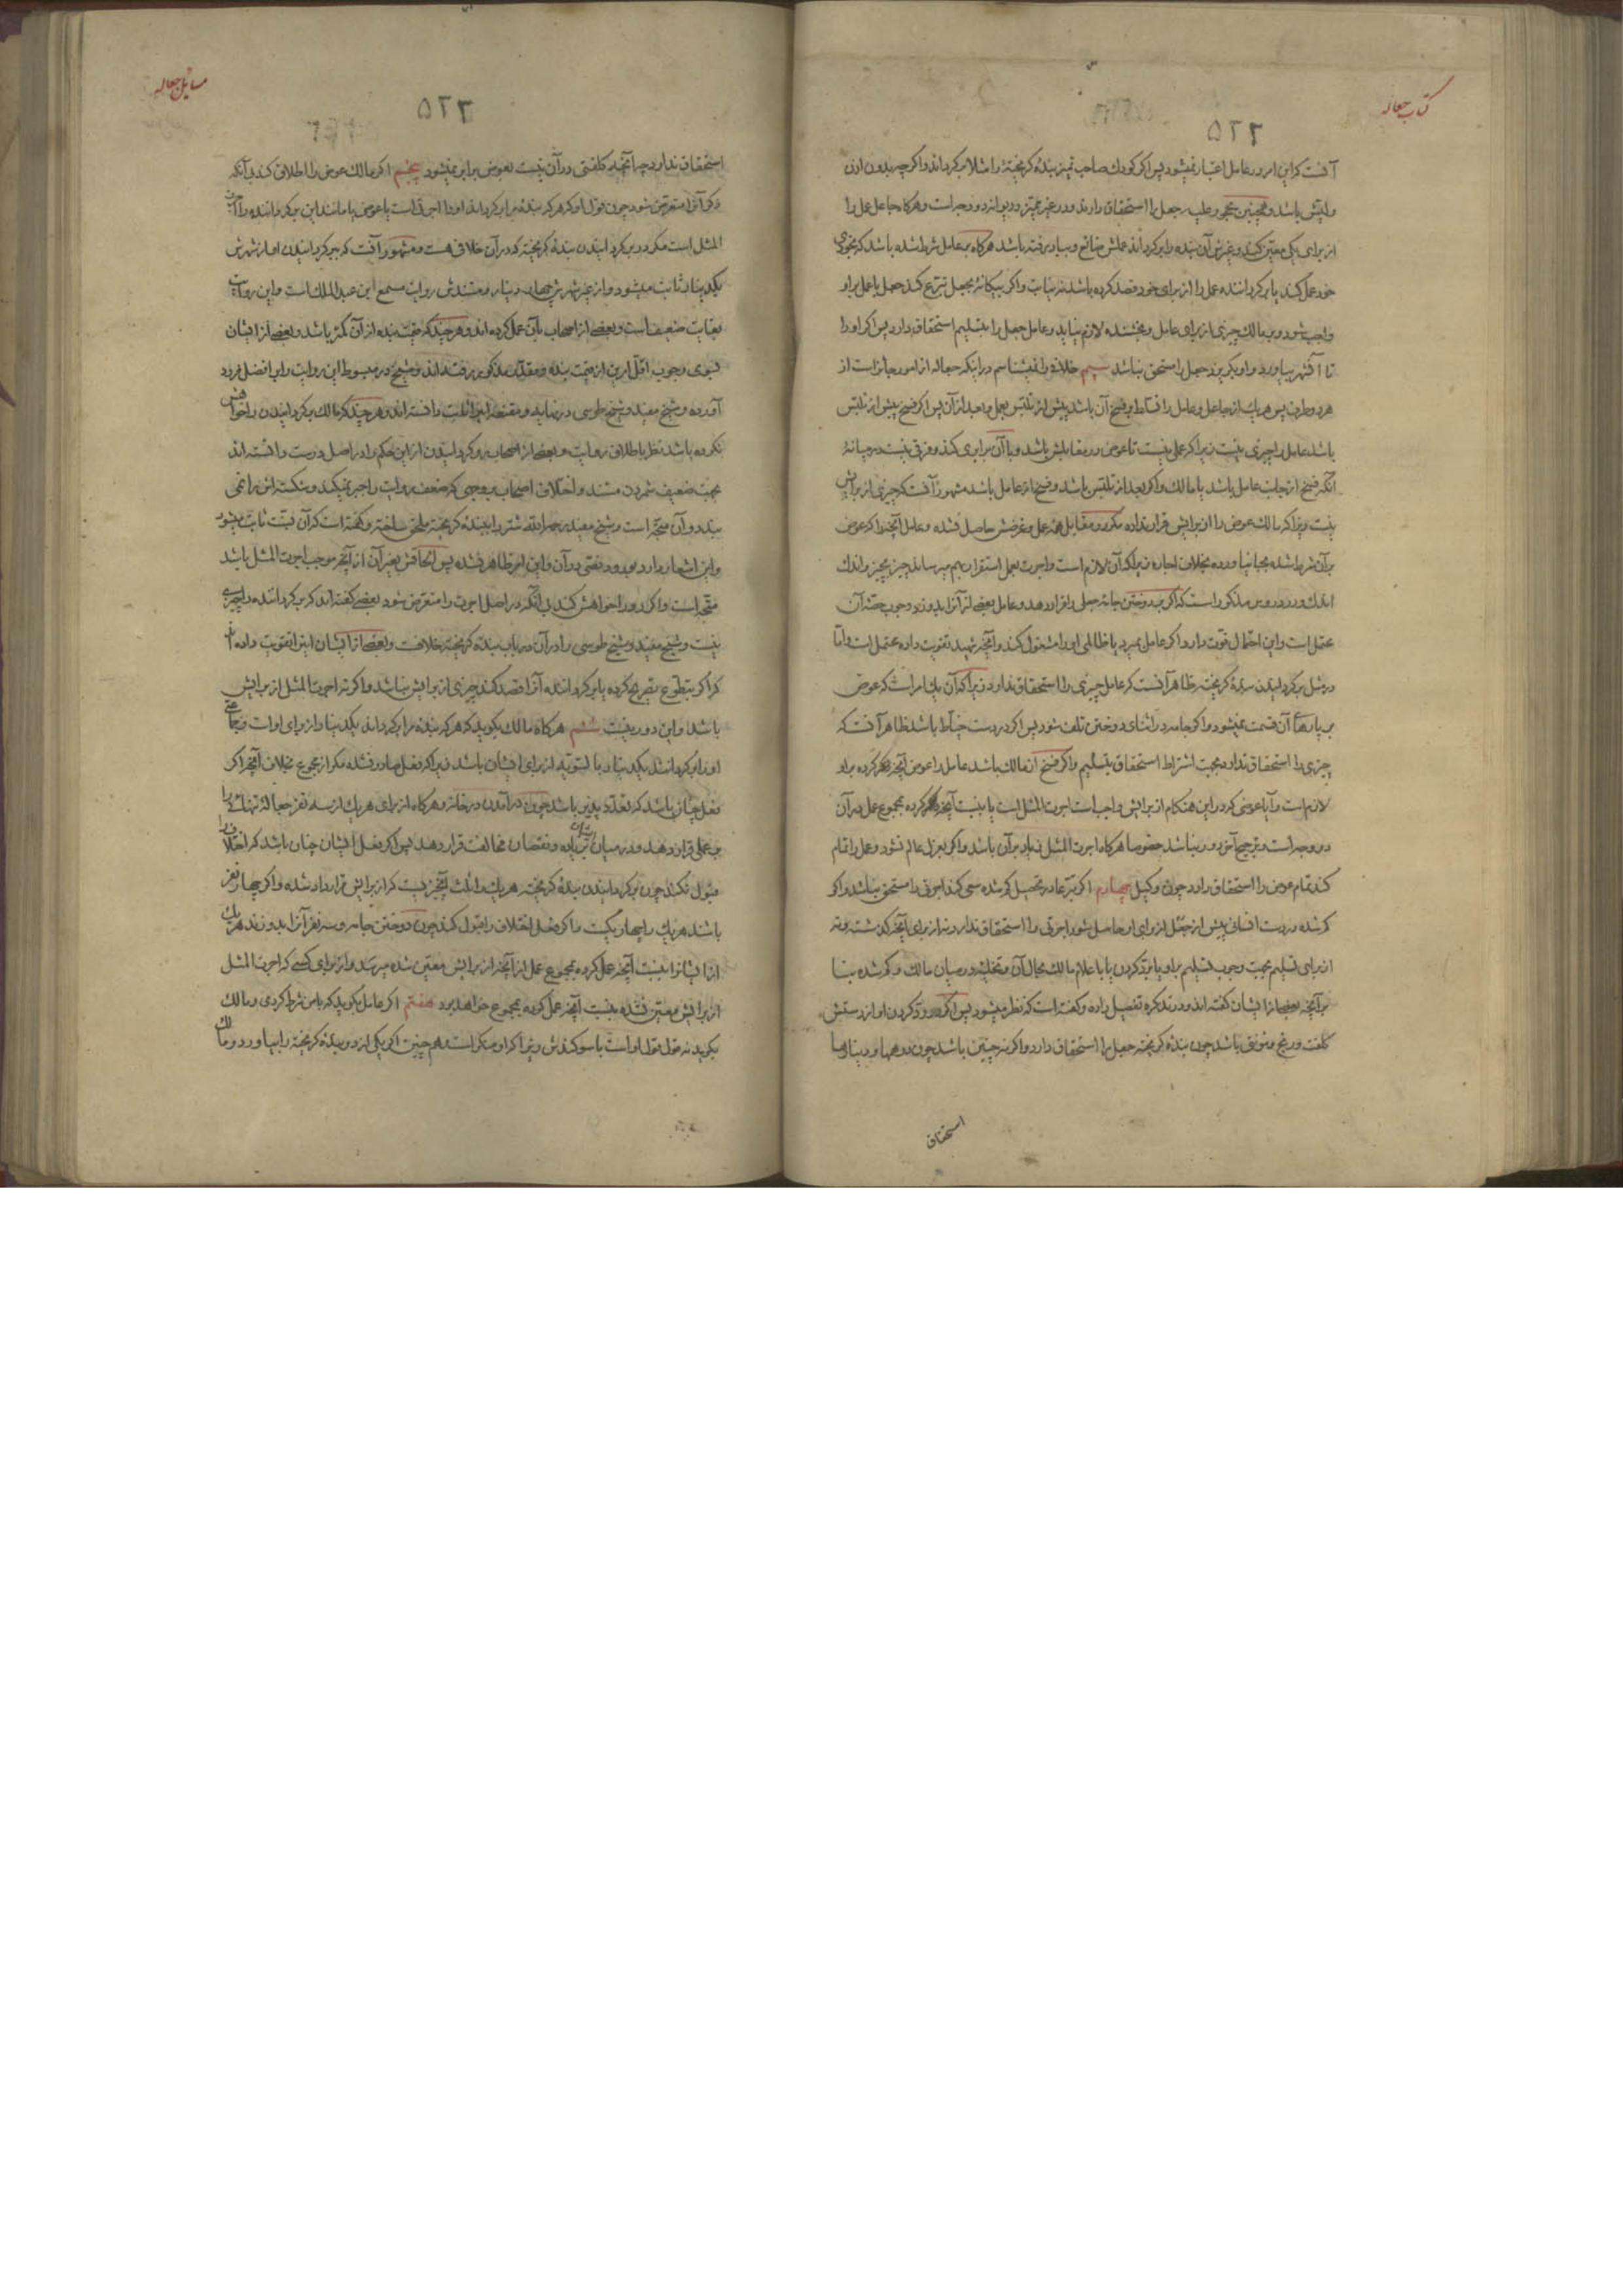 کتاب جعاله
۵۲۲
آنست که این امر در عامل اعتبار نمیشود پس اگر کودک صاحب تمیز بندهٔ گریخته را مثلا برگرداند و اگر چه بدون اذن
ولیش باشد و همچنین محجور علیه جعل را استحقاق دارند و در غیر ممیز و دیوانه دو وجه است و هرگاه جاعل عمل را
از برای یکی معین کند و غیرش آن بنده را برگرداند عملش ضایع و بباد رفته باشد هرگاه بر عامل شرط شده باشد که بخودی
خود عمل کند یا برگرداننده عمل را از برای خود قصد کرده باشد نه نیابت و اگر بیگانهٔ بجعل تبرع کند جعل با عمل بر او
واجب شود و بر مالک چیزی از برای عامل و بخشنده لازم نیاید و عامل جعل را بتسلیم استحقاق دارد پس اگر او را
تا آن شهر بیاورد و او بگریزد جعل را مستحق نباشد سیم خلافی را نمیشناسم در اینکه جعاله از امور جایز است از
هر دو طرف پس هر یک از جاعل و عامل را تسلط بر فسخ آن باشد پیش از تلبس بعمل و بعد از آن پس اگر فسخ پیش از تلبس
باشد عامل را چیزی نیست زیرا که عملی نیست تا عوض در مقابلش باشد و با آن برابری کند و فرقی نیست در میانهٔ
آنکه فسخ از جانب عامل باشد یا مالک و اگر بعد از تلبس باشد و فسخ از عامل باشد مشهور آنست که چیزی از برایش
نیست زیرا که مالک عوض را از برایش قرار نداده مگر در مقابل همه عمل و غرضش حاصل نشده و عامل آنچه را که عوض
بر آن شرط شده بجا نیاورده بخلاف اجاره زیرا که آن لازم است و اجرت بعمل استقرار بهم میرساند چیز بچیز و اندک
اندک و در دروس مذکور است که اگر بر دوختن جامه جعلی را قرار دهد و عامل بعض از آنرا بدوزد وجوب حصهٔ آن
محتمل است و این احتمال قوت دارد اگر عامل بمیرد یا ظالمی او را مشغول کند و آنچه شهید تقویت داده محتمل است و اما
در مثل برگردانیدن بندهٔ گریخته ظاهر آنست که عامل چیزی را استحقاق ندارد زیرا که آن یک امر است که عوض
بر پارهای آن قسمت نمیشود و اگر جامه در اثنای دوختن تلف شود پس اگر در دست خیاط باشد ظاهر آنست که
چیزی را استحقاق ندارد بجهت اشتراط استحقاق بتسلیم و اگر فسخ از مالک باشد عامل را عوض آنچه کرده بر او
لازم است و آیا عوضی که در این هنگام از برایش واجب است اجرت المثل است یا بنسبت آنچه کرده بمجموع عمل در آن
دو وجه است و ترجیح آخر دور نباشد خصوصا هرگاه اجرت المثل زیاد بر آن باشد و اگر بعزل عالم نشود و عمل را تمام
کند تمام عوض را استحقاق دارد چون وکیل چهارم اگر تبرعا در تحصیل گم شده سعی کند اجرتی را مستحق نباشد و اگر
گم شده در دست انسانی پیش از جعل از برای او حاصل شود اجرتی را استحقاق ندارد نه از برای آنچه گذشته و نه
از برای تسلیم بجهت وجوب تسلیم بر او یا برد کردن یا باعلام مالک بحال آن و تخلیه در میان مالک و گم شده بنا
بر آنچه بعضی از ایشان گفته اند و در تذکره تفصیل داده و گفته است که نظر میشود پس اگر در رد کردن او از دستش
کلفت و رنج و مؤنتی باشد چون بندهٔ گریخته جعل را استحقاق دارد و اگر نه چنین باشد چون درهمها و دینارها
استحقاق
مسایل جعاله
۵۲۳
استحقاق ندارد چه آنچه کلفتی در آن نیست بعوض برابر نمیشود پنجم اگر مالک عوض را اطلاق کند بی آنکه
ذکر آنرا متعرض شود چون قول او که هر که بندهٔ مرا برگرداند او را اجرتی است یا عوضی یا مانند این برگرداننده را اجرت
المثل است مگر در برگردانیدن بندهٔ گریخته که در آن خلافی هست و مشهور آنست که ببرگردانیدن او از شهرش
یکدینار ثابت میشود و از غیر شهرش چهار دینار و مستندش روایت مسمع ابن عبد الملک است و این روایت
بغایت ضعیف است و بعضی از اصحاب بآن عمل کرده اند و هر چند که قیمت بنده از آن کمتر باشد و بعضی از ایشان
بسوی وجوب اقل امرین از قیمت بنده و مقدار مذکور رفته اند و شیخ در مبسوط این روایت را بر افضل فرود
آورده و شیخ مفید و شیخ طوسی در نهایه و مقنعه این را ثابت دانسته اند و هر چند که مالک برگردانیدن را خواهش
نکرده باشد نظر باطلاق روایت و بعضی از اصحاب رو گردانیدن از این حکم را در اصل درست دانسته اند
بجهت ضعیف شمردن مستند و اختلاف اصحاب بر وجهی که ضعف روایت را جبر نمیکند و شکسته اش را نمی
بندد و آن متجه است و شیخ مفید رحمه الله شتر را ببندهٔ گریخته ملحق ساخته و گفته است که آن قیمت ثابت میشود
و این اشعار دارد بورود نصی در آن و این امر ظاهر نشده پس الحاقش بغیر آن از آنچه موجب اجرت المثل باشد
متجه است و اگر رد را خواهش کند بی آنکه در اصل اجرت را متعرض شود بعضی گفته اند که برگرداننده را چیزی
نیست و شیخ مفید و شیخ طوسی را در آن در باب بندهٔ گریخته خلافست و بعضی از ایشان این را تقویت داده
که اگر بتطوع تصریح کرده یا برگرداننده آنرا قصد کند چیزی از برایش نباشد و اگر نه اجرت المثل از برایش
باشد و این دور نیست ششم هرگاه مالک بگوید که هر که بنده مرا برگرداند یکدینار از برای اوست و جماعتی
او را برگردانند یکدینار بالسویه از برای ایشان باشد زیرا که فعل صادر نشده مگر از مجموع بخلاف آنچه اگر
فعل چنان باشد که تعدد پذیر باشد چون درآمدن در خانه و هرگاه از برای هر یک از سه نفر جعالهٔ تنهائی را
بر عملی قرار دهد و در میان ایشان بزیاده و نقصان مخالفت قرار دهد پس اگر فعل ایشان چنان باشد که اختلاف را
قبول نکند چون برگردانیدن بندهٔ گریخته هر یک را ثلث آنچیزیست که از برایش قرار داد شده و اگر چهار نفر
باشند هر یک را چهار یکست و اگر فعل اختلاف را قبول کند چون دوختن جامه و سه نفر آنرا بدوزند هر یک
از ایشانرا بنسبت آنچه عمل کرده بمجموع عمل از آنچه از برایش معین شده میرسد و از برای کسی که اجرت المثل
از برایش معین نشده بنسبت آنچه عمل کرده بمجموع خواهد بود هفتم اگر عامل بگوید که با من شرط کردی و مالک
بگوید نه قول قول او است با سوگندش زیرا که او منکر است و هم چنین اگر یکی از دو بندهٔ گریخته را بیاورد و مالک